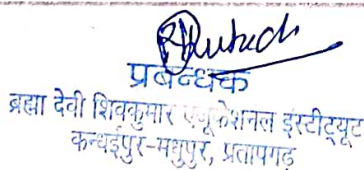 प्रबन्धक
ब्रह्मा देवी शिवकुमार एजूकेशनल इंस्टीट्यूट
कन्धईपुर-मधुपुर, प्रतापगढ़